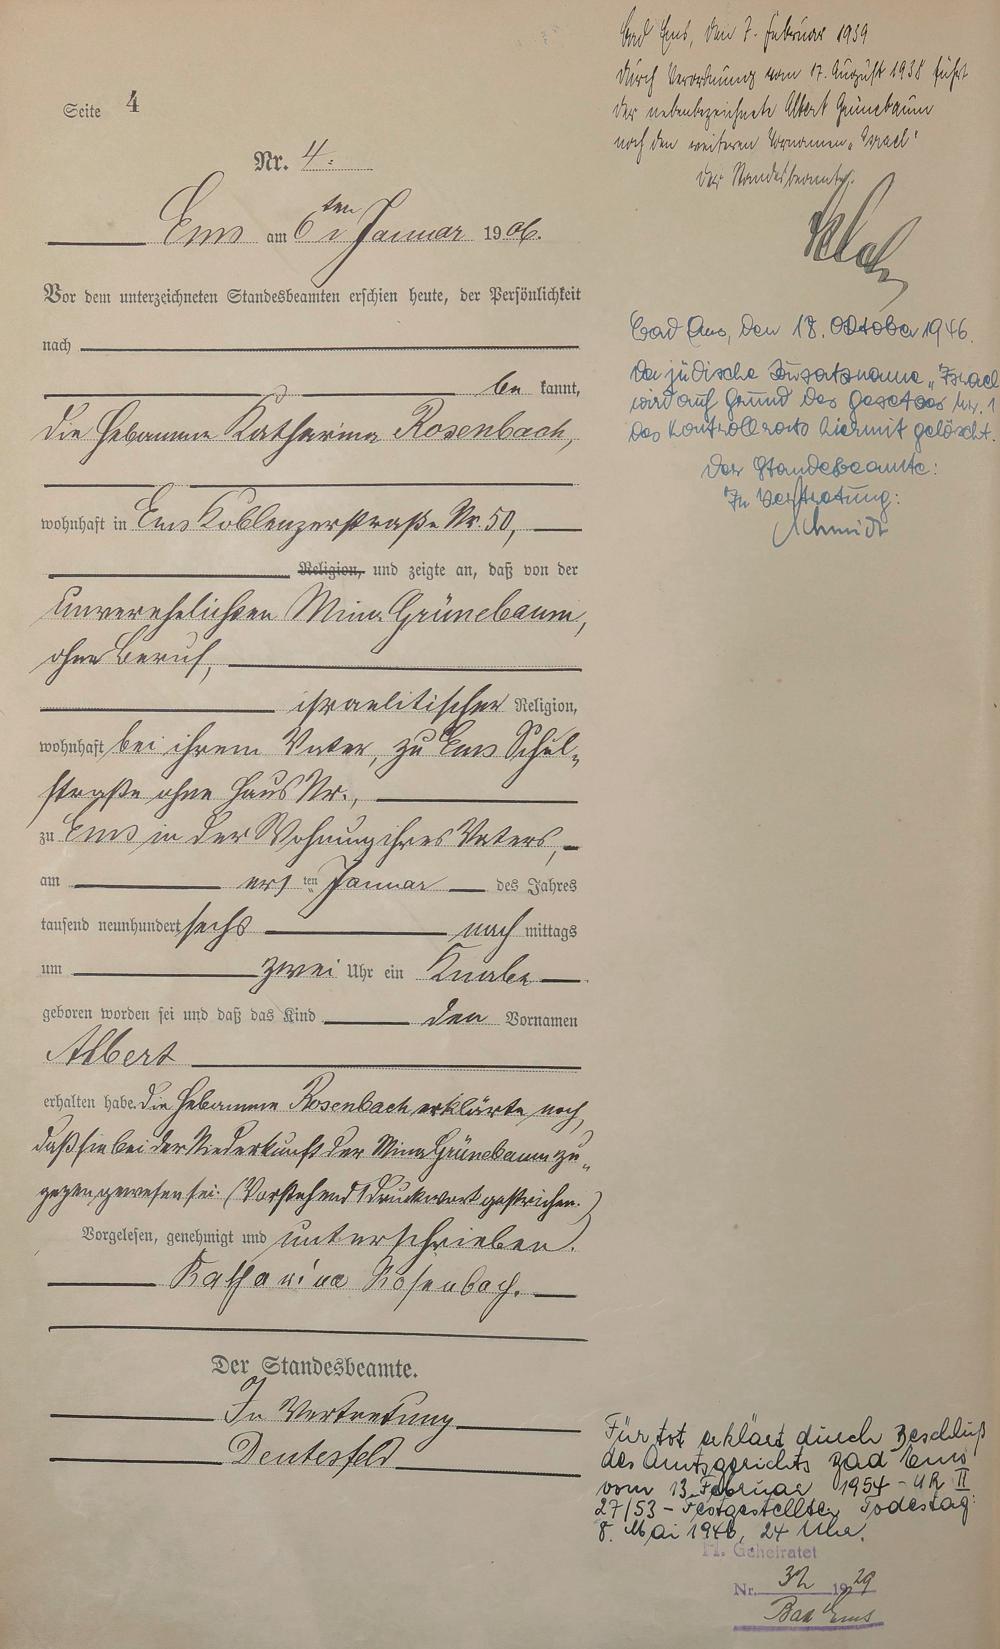 Seite 4
Nr. 4.
Ems am 6ten Januar 1906.
Vor dem unterzeichneten Standesbeamten erschien heute, der Persönlichkeit
nach
be kannt,
die Hebamme Katharina Rosenbach,
wohnhaft in Ems Koblenzerstraße Nr. 50,
Religion, und zeigte an, daß von der
unverehelichten Mina Grünebaum,
ohne Beruf,
israelitischer Religion,
wohnhaft bei ihrem Vater, zu Ems Schul-
straße ohne Haus Nr.,
zu Ems in der Wohnung ihres Vaters,
am ersten Januar des Jahres
tausend neunhundert sechs nach mittags
um zwei Uhr ein Knabe
geboren worden sei und daß das Kind den Vornamen
Albert
erhalten habe. Die Hebamme Rosenbach erklärte noch,
daß sie bei der Niederkunft der Mina Grünebaum zu-
gegen gewesen sei. (Vorstehend 1 Druckwort gestrichen.)
Vorgelesen, genehmigt und unterschrieben.
Katharina Rosenbach.
Der Standesbeamte.
In Vertretung
Bad Ems, den 7. Februar 1939
Durch Verordnung vom 17. August 1938 führt
der nebenbezeichnete Albert Grünebaum
noch den weiteren Vornamen "Israel"
Der Standesbeamte.
Bad Ems, den 18. Oktober 1946.
Der jüdische Zusatzname "Israel
wird auf Grund des Gesetzes Nr. 1
des Kontrollrats hiermit gelöscht.
Der Standesbeamte:
In Vertretung:
Schmidt
Für tot erklärt durch Beschluß
des Amtsgerichts Bad Ems
vom 13. Februar 1954 - UR II
27/53 - Festgestellter Todestag:
8. Mai 1945, 24 Uhr.
H. Geheiratet
Nr. 32 1929
Bad Ems